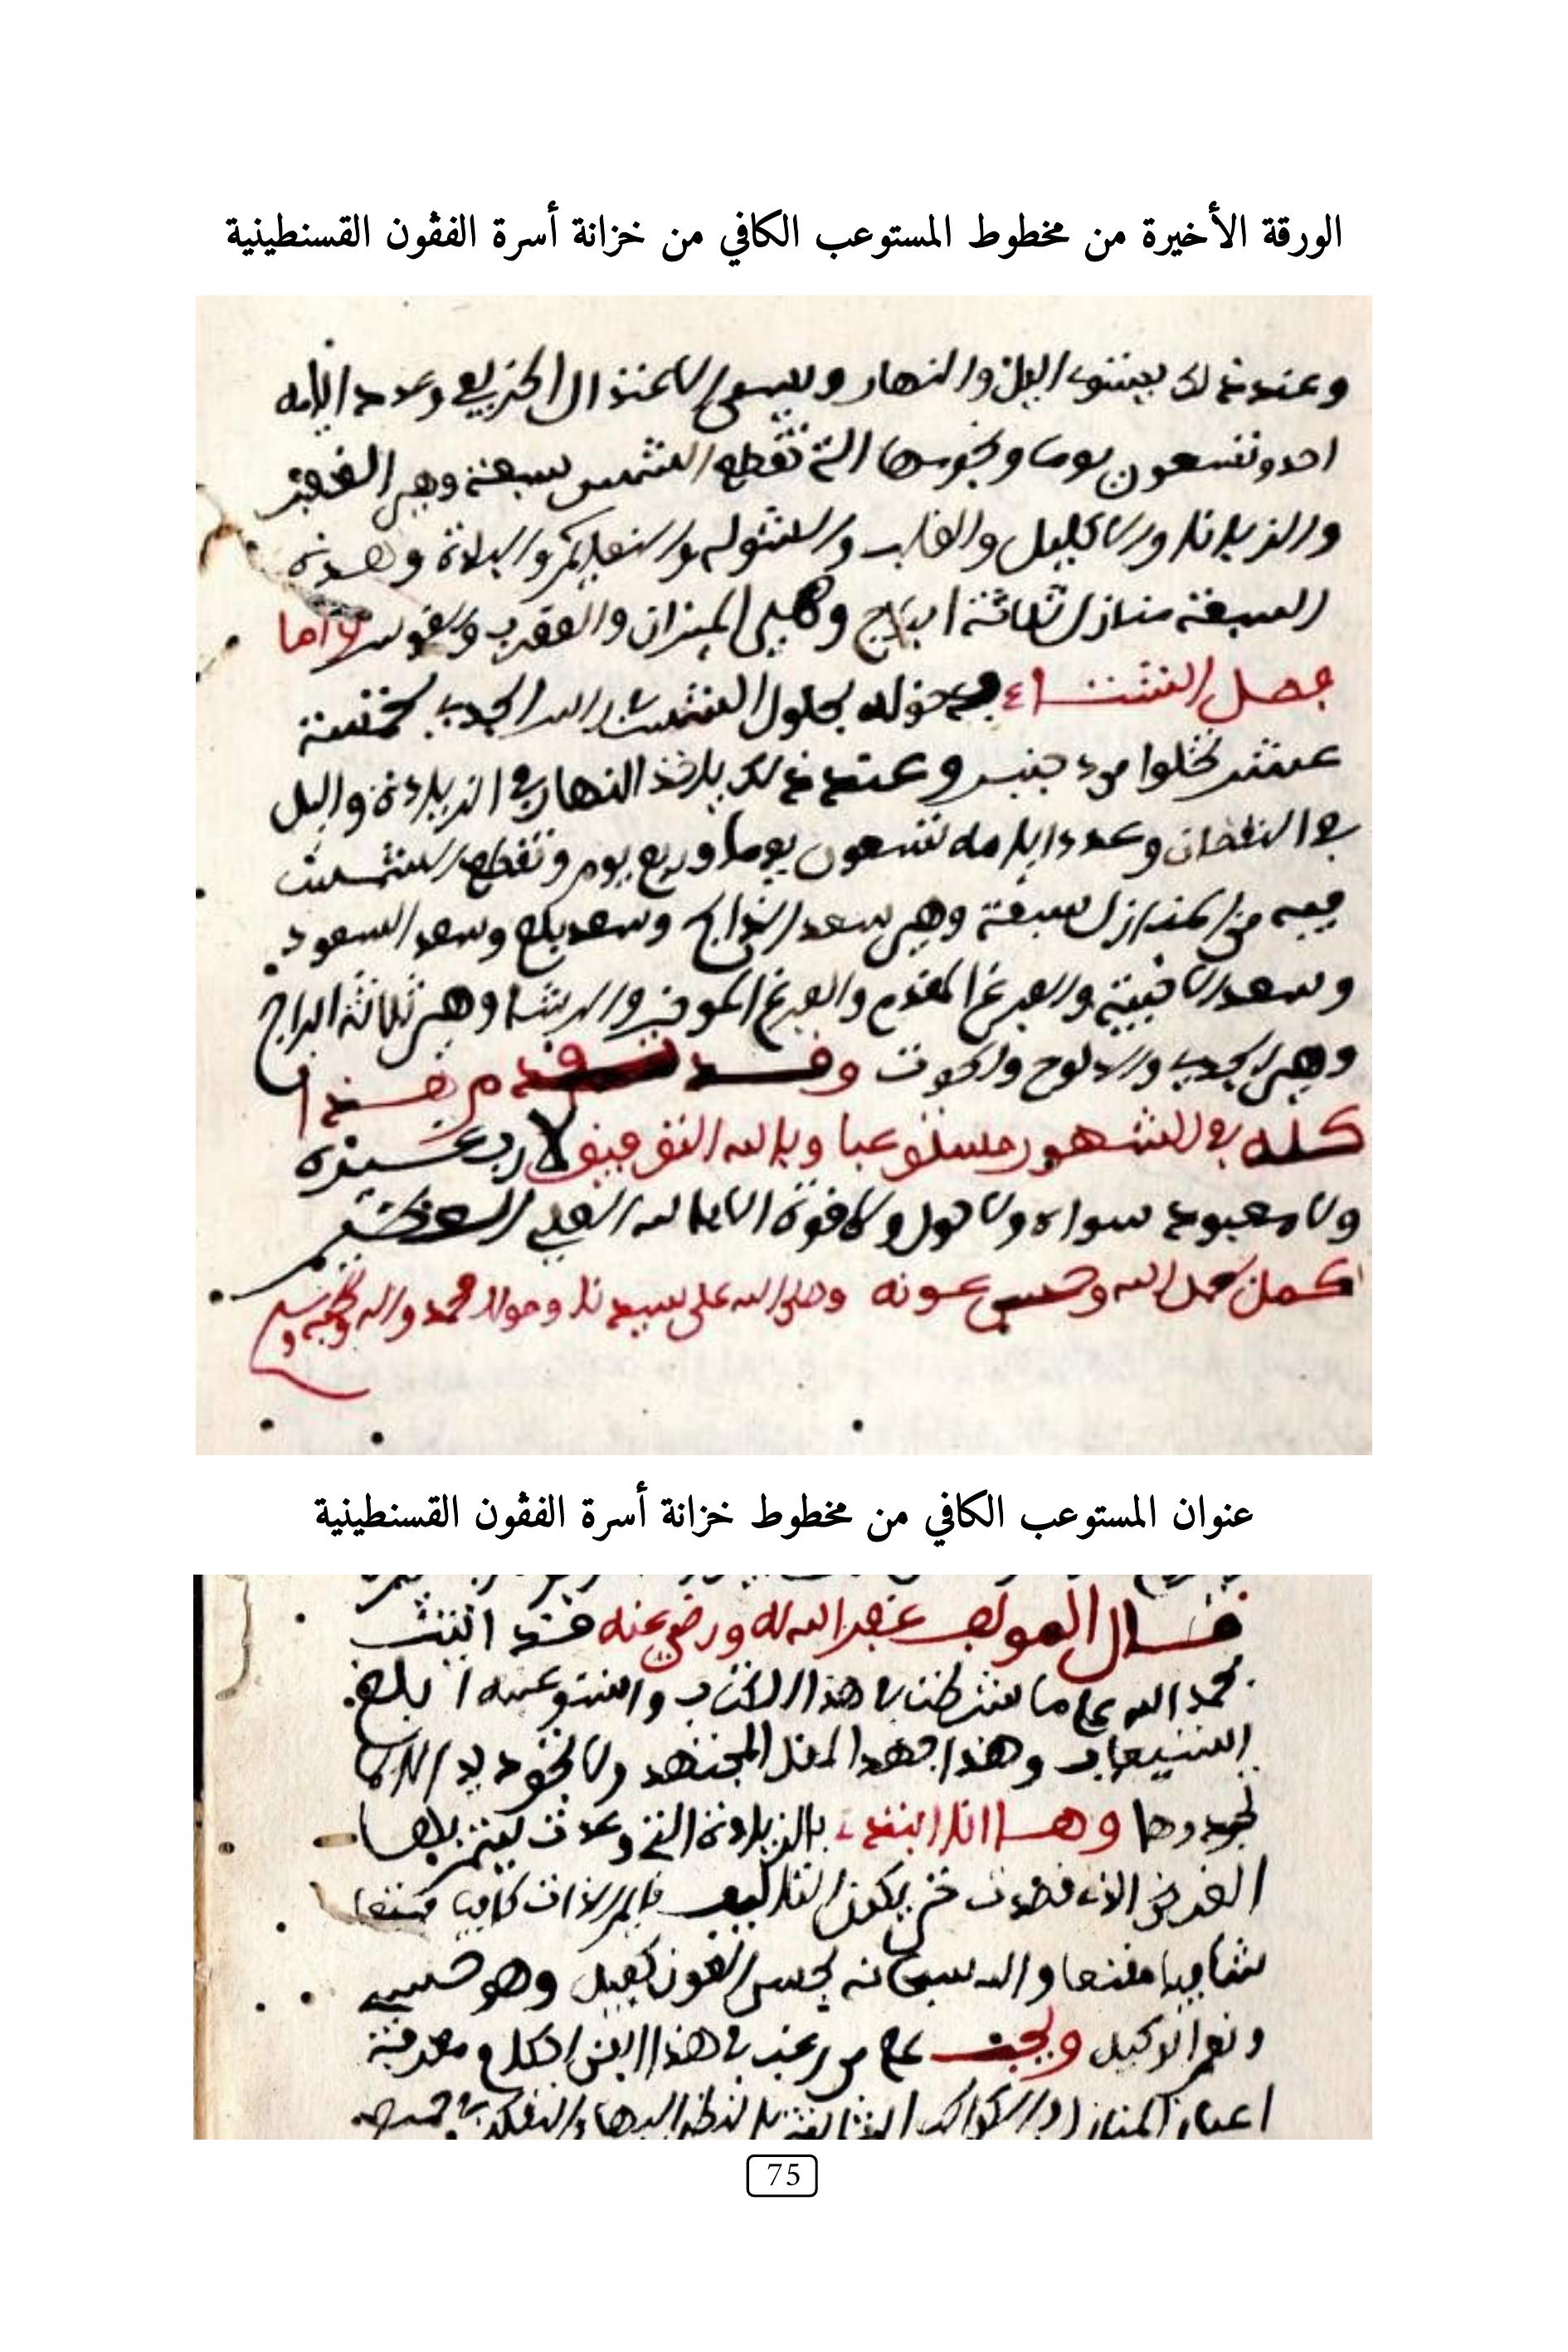 الورقة الأخيرة من مخطوط المستوعب الكافي من خزانة أسرة الفڨون القسنطينية
وعند ذلك يستوي اليل والنهار ويسمى الاعتدال الخريفي وعدد ايامه
احد وتسعون يوما ونجومها التي تقطع الشمس سبعة وهي الغفر
والزبانا والاكليل والقلب والشولة والنعايم والبلدة وهذه
السبعة منازل ثلاثة ابراج وهي الميزان والعقرب والقوس واما
فصل الشتاء فدخوله بحلول الشمس براس الجدي لخمسة
عشر تخلوا من دجنبر وعند ذلك ياخذ النهار في الزيادة واليل
في النقصان وعدد ايامه تسعون يوما وربع يوم وتقطع الشمس
فيه من المنازل سبعة وهي سعد الذابح وسعد بلع وسعد السعود
وسعد الاخبية والفرغ المقدم والفرغ الموخر والرشا وهي ثلاثة ابراج
وهي الجدي والدلوح والحوت وقد تقدم هذا
كله في الشهور مستوعبا وبالله التوفيق لا رب غيره
ولا معبود سواه ولا حول ولا قوة الا بالله العلي العظيم
اكمل بحمد الله وحسن عونه وصلى الله على سيدنا ومولانا محمد واله وصحبه وسلم
عنوان المستوعب الكافي من مخطوط خزانة أسرة الفڨون القسنطينية
قال المولف غفر الله له ورضي عنه قد اتيت
بحمد الله على ما شرطت في هذا الكتاب واستوعبته ابلغ
استيعاب وهذا جهد المقل المجتهد ولا تجود يد الا بما
تجد وها انا ابتدي بالزيادة التي وعدت
الغرض الذي قصدت حتى يكون التاليف كافيا
شافيا مقنعا والله سبحانه بحسن العون كفيل وهو حسبي
ونعم الوكيل ويجب على من رغب في هذا معرفة
اعيان المنازل والكواكب الثابتة بالنظر اليها والتفكر في
75